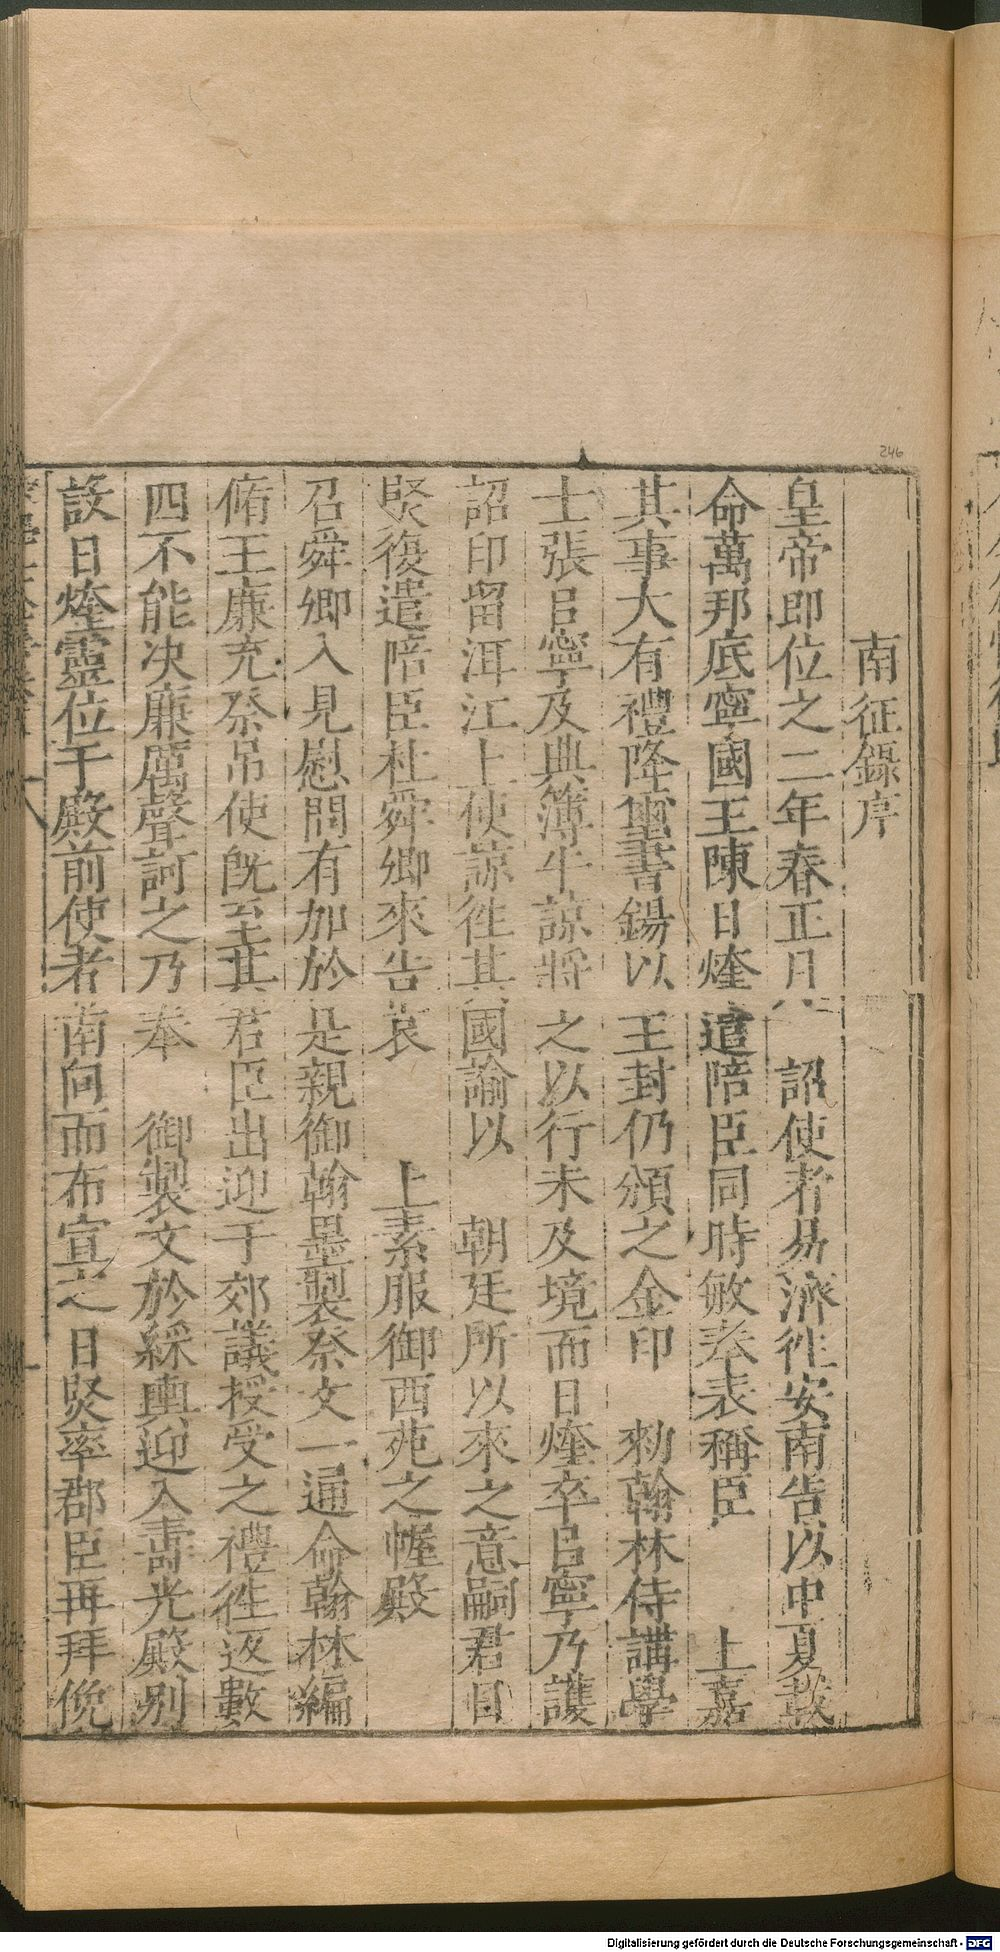 246
南征錄序
皇帝即位之二年春正月　詔使者易濟徃安南告以中夏敉
命萬邦底寧國王陳日煃遣陪臣同時敏奉表稱臣　上嘉
其事大有禮降璽書錫以王封仍頒之金印　勑翰林侍講學
士張㠯寧及典簿牛諒將之以行未及境而日煃卒㠯寧乃護
詔印留洱江上使諒徃其國諭以　朝廷所以來之意嗣君日
熞復遣陪臣杜舜卿來告哀　上素服御西苑之幄殿
召舜卿入見慰問有加於是親御翰墨製祭文一通命翰林編
脩王廉充祭吊使旣至其君臣出迎于郊議授受之禮徃返數
四不能決廉厲聲訶之乃奉　御製文於綵輿迎入壽光殿別
設日煃靈位于殿前使者南向而布宣之日熞率郡臣再拜俛
Digitalisierung gefördert durch die Deutsche Forschungsgemeinschaft - DFG